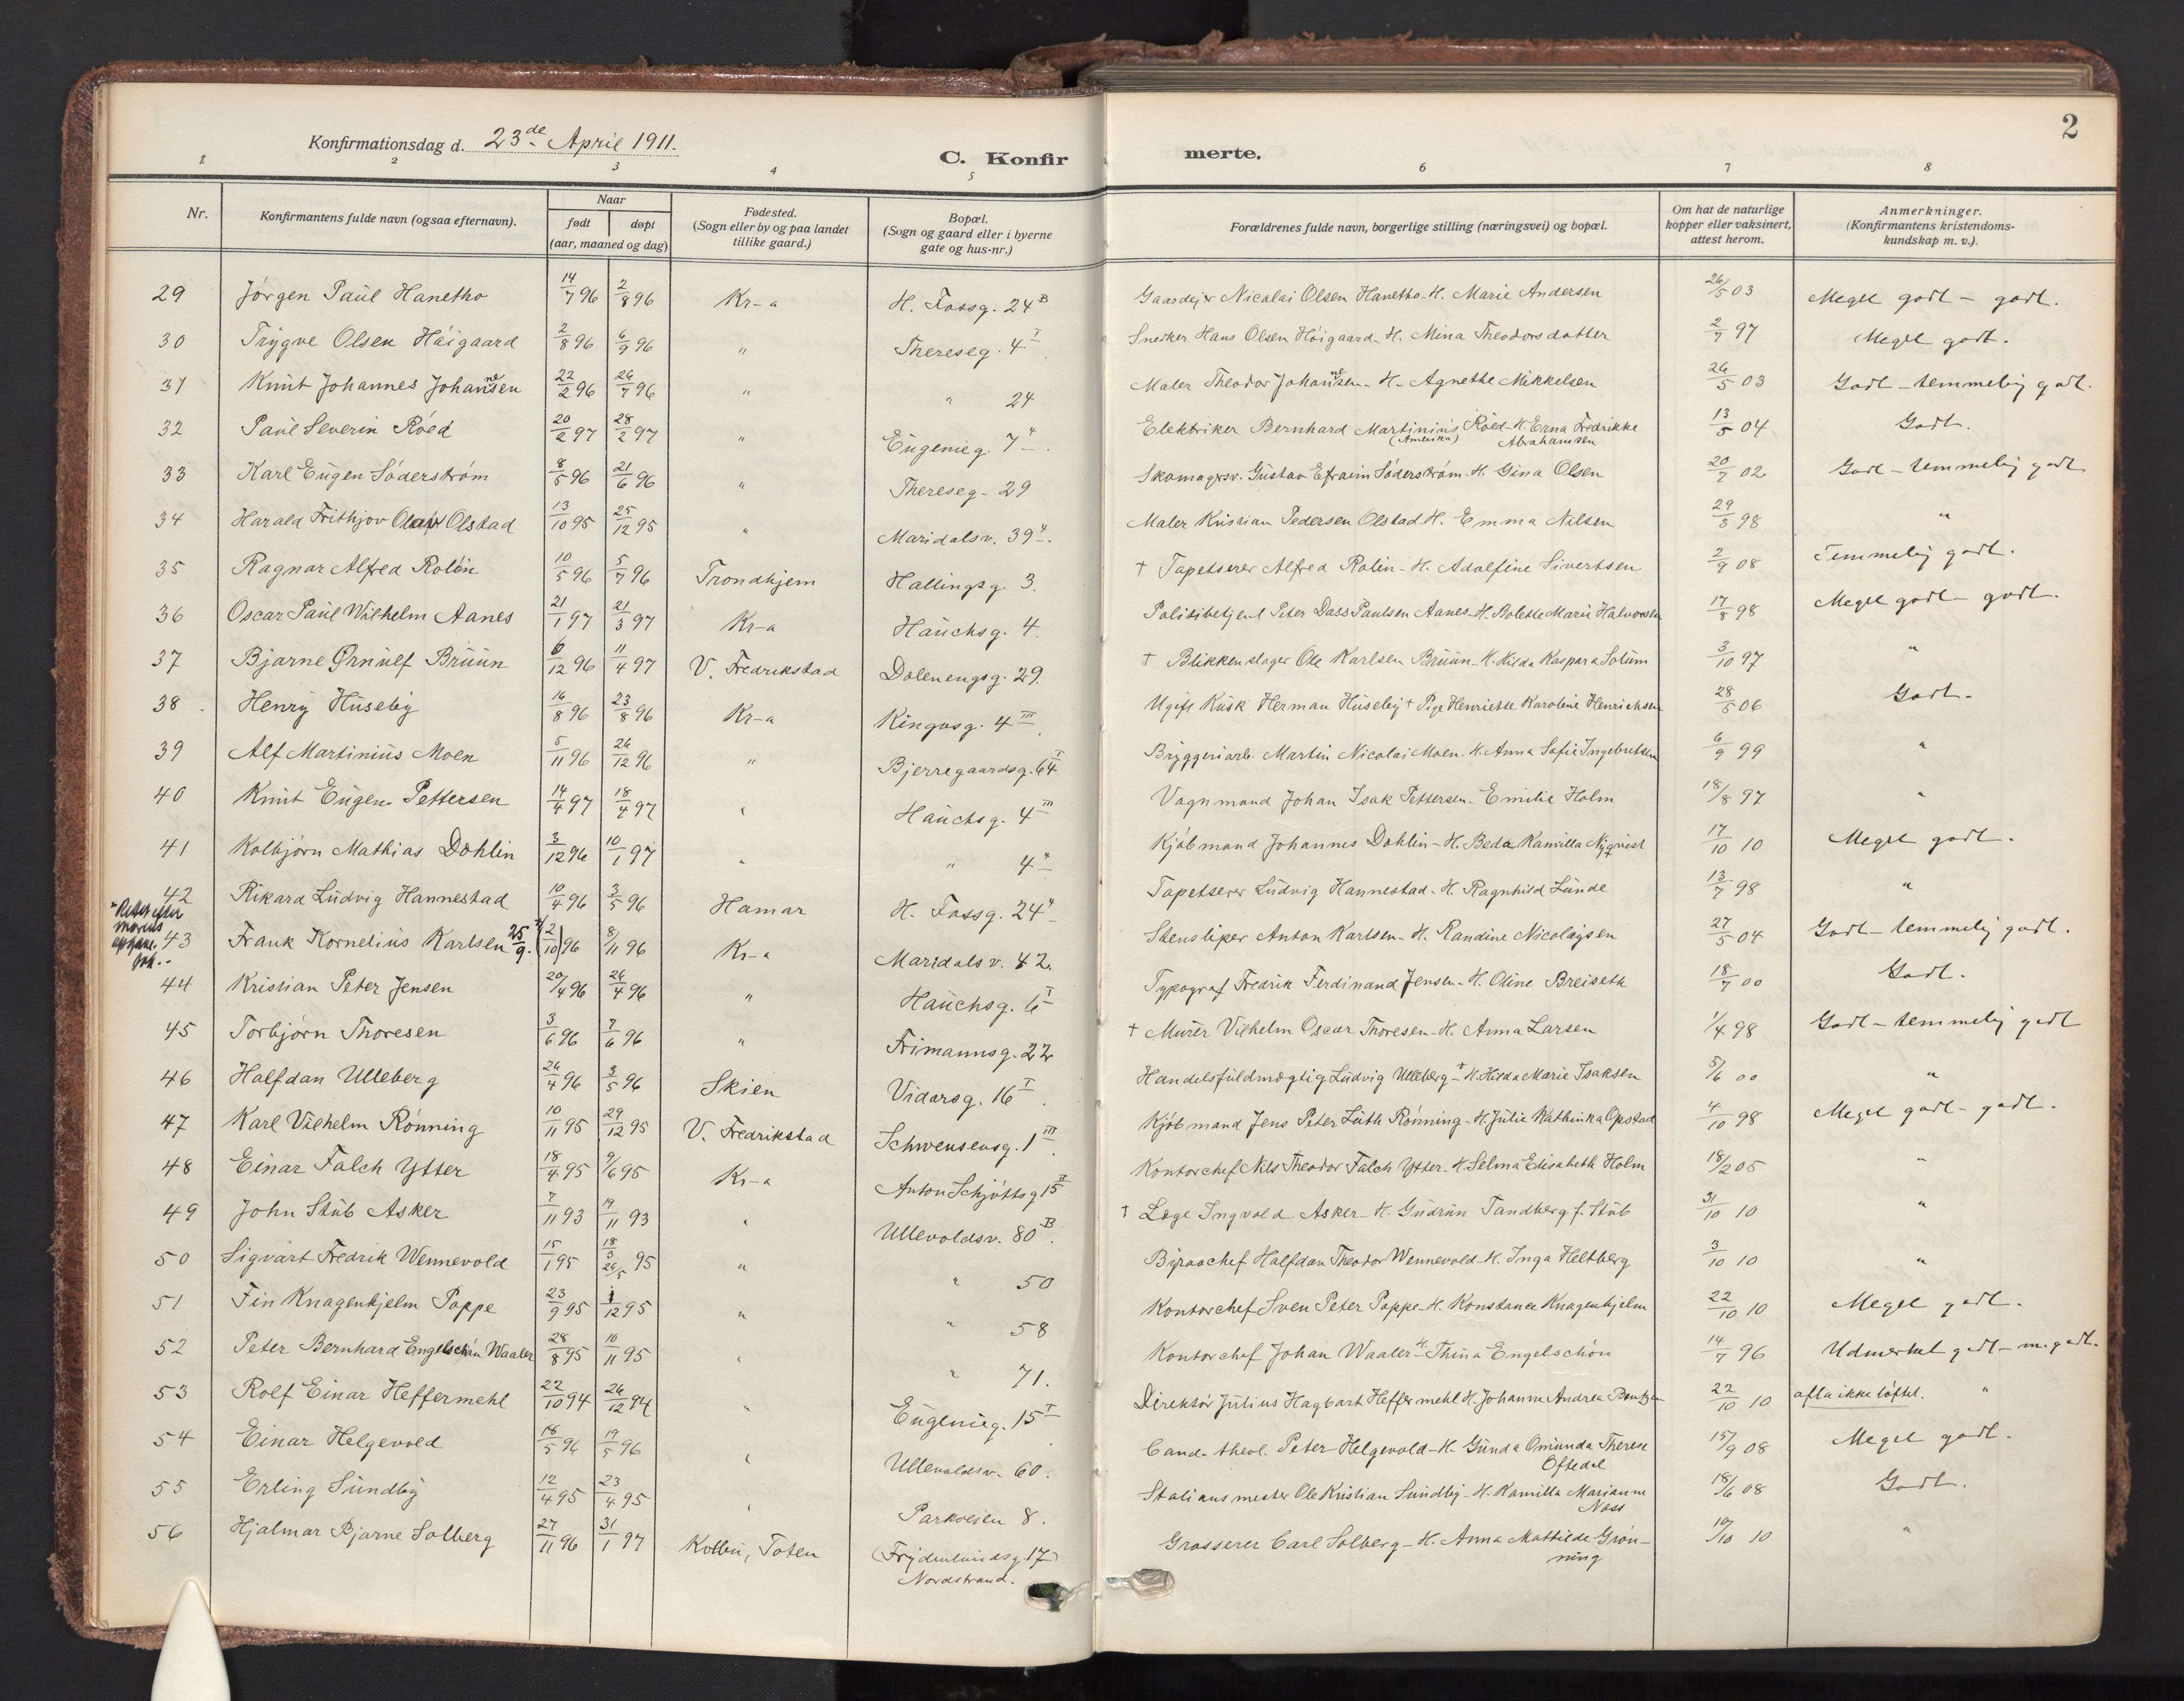 2
Konfirmationsdag d. 23de April 1911.
C. Konfirmerte.
1 2 3 4 5 6 7 8
Nr. | Konfirmantens fulde navn (ogsaa efternavn). | Naar født | døpt (aar, maaned og dag) | Fødested. (Sogn eller by og paa landet tillike gaard.) | Bopæl. (Sogn og gaard eller i byerne gate og hus-nr.) | Forældrenes fulde navn, borgerlige stilling (næringsvei) og bopæl. | Om hat de naturlige kopper eller vaksinert, attest herom. | Anmerkninger. (Konfirmantens kristendoms-kundskap m. v.).
29 Jørgen Paul Hanetho 14/7 96 2/8 96 Kr-a H. Fossg. 24 B Gaardejer Nicolai Olsen Hanetho - H. Marie Andersen 26/5 03 Meget godt - godt.
30 Trygve Olsen Høigaard 2/8 96 6/9 96 " Thereseg. 4 I. Snekker Hans Olsen Høigaard - H. Mina Theodorsdatter 2/7 97 Meget godt.
31 Knut Johannes Johannesen 22/2 96 26/7 96 " " 24 Maler Theodor Johannesen - H. Agnethe Mikkelsen 26/5 03 Godt - temmelig godt.
32 Paul Severin Røed 20/2 97 28/2 97 " Eugenieg. 7 ". Elektriker Bernhard Martinius (Amerika) Røed - H. Erna Fredrikke Abrahamsen 13/5 04 Godt.
33 Karl Eugen Søderstrøm 8/5 96 21/6 96 " Thereseg. 29 Skomagersv. Gustav Efraim Søderstrøm - H. Gina Olsen 20/7 02 Godt - temmelig godt
34 Harald Frithjov Olaf Olstad 13/10 95 25/12 95 " Maridalsv. 39 ". Maler Kristian Pedersen Olstad H. Emma Nilsen 29/8 98 "
35 Ragnar Alfred Rolin 10/5 96 5/7 96 Trondhjem Hallingsg. 3. † Tapetserer Alfred Rolin - H. Adolfine Sivertsen 2/9 08 Temmelig godt.
36 Oscar Paul Wilhelm Aanes 21/1 97 21/3 97 Kr-a Hauchsg. 4. Politibetjent Peter Dass Paulsen Aanes - H. Bolette Marie Halvorsen 17/8 98 Meget godt - godt.
37 Bjarne Ørnulf Bruun 6/12 96 11/4 97 V. Fredrikstad Dalenengsg. 29. † Blikkenslager Ole Karlsen Bruun - H. Hilda Kaspara Solum 3/10 97 "
38 Henry Huseby 16/8 96 23/8 96 Kr-a Kingosg. 4 III. Ugift Kusk Herman Huseby † Pige Henriette Karoline Henrichsen 28/5 06 Godt.
39 Alf Martinius Moen 5/11 96 26/12 96 " Bjerregaardsg. 64 I Bryggeriarb. Martin Nicolai Moen - H. Anna Sofie Ingebretsen 6/9 99 "
40 Knut Eugen Pettersen 14/4 97 18/4 97 " Hauchsg. 4 III Vognmand Johan Isak Pettersen - Emilie Holm 18/8 97 "
41 Kolbjørn Mathias Dahlin 3/12 96 10/1 97 " " 4 " Kjøbmand Johannes Dahlin - H. Beda Kamilla Nyqvist 17/10 10 Meget godt.
42 Rikard Ludvig Hannestad 10/4 96 3/5 96 Hamar H. Fossg. 24 " Tapetserer Ludvig Hannestad - H. Ragnhild Lunde 13/7 98 "
* Rettet efter
43 Frank Kornelius Karlsen 25/9. (2/10) 96 8/11 96 Kr-a Maridalsv. 42. Stensliper Anton Karlsen - H. Randine Nicolaysen 27/5 04 Godt - temmelig godt.
44 Kristian Peter Jensen 20/4 96 26/4 96 " Hauchsg. 6 I Typograf Fredrik Ferdinand Jensen - H. Oline Breiseth 18/7 00 Godt.
45 Torbjørn Thoresen 3/6 96 7/6 96 " Frimannsg. 22 † Murer Vilhelm Oscar Thoresen - H. Anna Larsen 1/4 98 Godt - temmelig godt
46 Halfdan Ulleberg 26/4 96 3/5 96 Skien Vidarsg. 16 I. Handelsfuldmægtig Ludvig Ulleberg - † H. Hilda Marie Isaksen 5/6 00 "
47 Karl Vilhelm Rønning 10/11 95 29/12 95 V. Fredrikstad Schwensensg. 1 III. Kjøbmand Jens Peter Luth Rønning - H. Julie Kathinka Opstad 4/10 98 Meget godt - godt.
48 Einar Falch Ytter 18/4 95 9/6 95 Kr-a Anton Schjøttsg 15 II Kontorchef Nils Theodor Falch Ytter - H. Selma Elisabeth Holm 18/2 05 "
49 John Stub Asker 7/11 93 19/11 93 " Ullevoldsv. 80 B. † Læge Ingvald Asker - H. Gudrun Tandberg f. Stub 31/10 10 "
50 Sigvart Fredrik Wennevold 15/1 95 18/3 26/5 95 " " 50 Byraachef Halfdan Theodor Wennevold - H. Inga Heltberg 3/10 10 "
51 Fin Knagenhjelm Poppe 23/9 95 1/12 95 " " 58 Kontorchef Sven Peter Poppe - H. Konstance Knagenhjelm 22/10 10 Meget godt.
52 Peter Bernhard Engelschøn Waaler 28/8 95 10/11 95 " " 71. Kontorchef Johan Waaler - H. Thina Engelschøn 14/7 96 Udmerket godt - m. godt.
53 Rolf Einar Heffermehl 22/10 94 26/12 94 " Eugenieg. 15 I Direktør Julius Hagbart Heffermehl H. Johanne Andrea Bentzen 22/10 10 afla ikke løftet. "
54 Einar Helgevold 18/5 96 19/5 96 " Ullevoldsv. 60. Cand. theol. Peter Helgevold - H. Gunda Omunda Therese Oftedal 15/9 08 Meget godt.
55 Erling Sundby 12/4 95 23/4 95 " Parkveien 8. Stationsmester Ole Kristian Sundby - H. Kamilla Marianne Næss 18/6 08 Godt.
56 Hjalmar Bjarne Solberg 27/11 96 31/1 97 Kolbu, Toten (Frydenlundsg. 17) Nordstrand. Grosserer Carl Solberg - H. Anna Mathilde Grønning 10/10 10 "